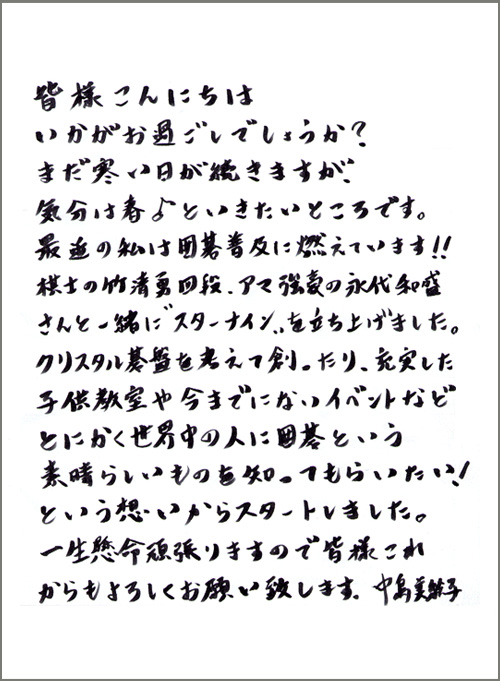 皆様こんにちは
いかがお過ごしでしょうか?
まだ寒い日が続きますが、
気分は春♪といきたいところです。
最近の私は囲碁普及に燃えています!!
棋士の竹清勇四段、アマ強豪の永代和盛
さんと一緒に“スターナイン”を立ち上げました。
クリスタル碁盤を考えて創ったり、充実した
子供教室や今までにないイベントなど
とにかく世界中の人に囲碁という
素晴らしいものを知ってもらいたい!
という想いからスタートしました。
一生懸命頑張りますので皆様これ
からもよろしくお願い致します。中島美絵子